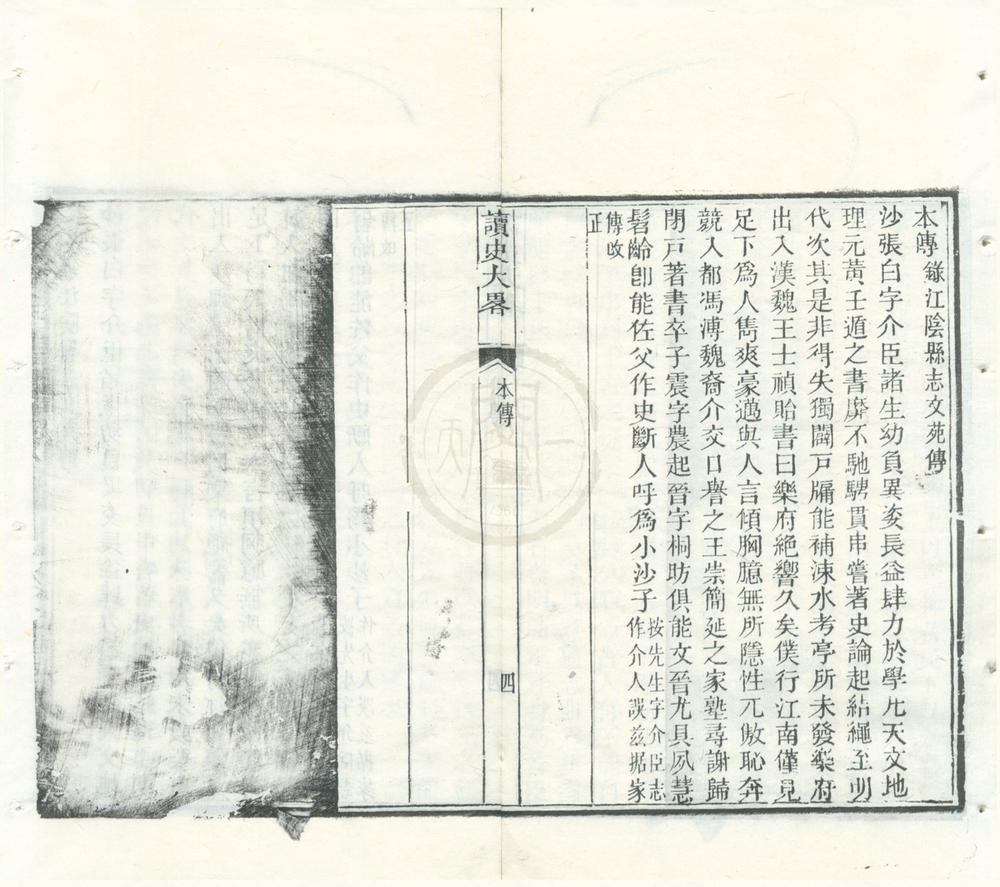 本傳錄江陰縣志文苑傳
沙張白字介臣諸生幼負異姿長益肆力於學凡天文地
理元黃壬遁之書靡不馳騁貫串嘗著史論起結繩至明
代次其是非得失獨闢戸牖能補涑水考亭所未發樂府
出入漢魏王士禎貽書曰樂府絕響久矣僕行江南僅見
足下爲人雋爽豪邁與人言傾胸臆無所隱性亢傲恥奔
競入都馮溥魏裔介交口譽之王崇簡延之家塾尋謝歸
閉戸著書卒子震字農起晉字桐昉俱能文晉尤具夙慧
髫齡卽能佐父作史斷人呼爲小沙子按先生字介臣志
作介人誤兹据家
傳改
正
讀史大畧
本傳
四